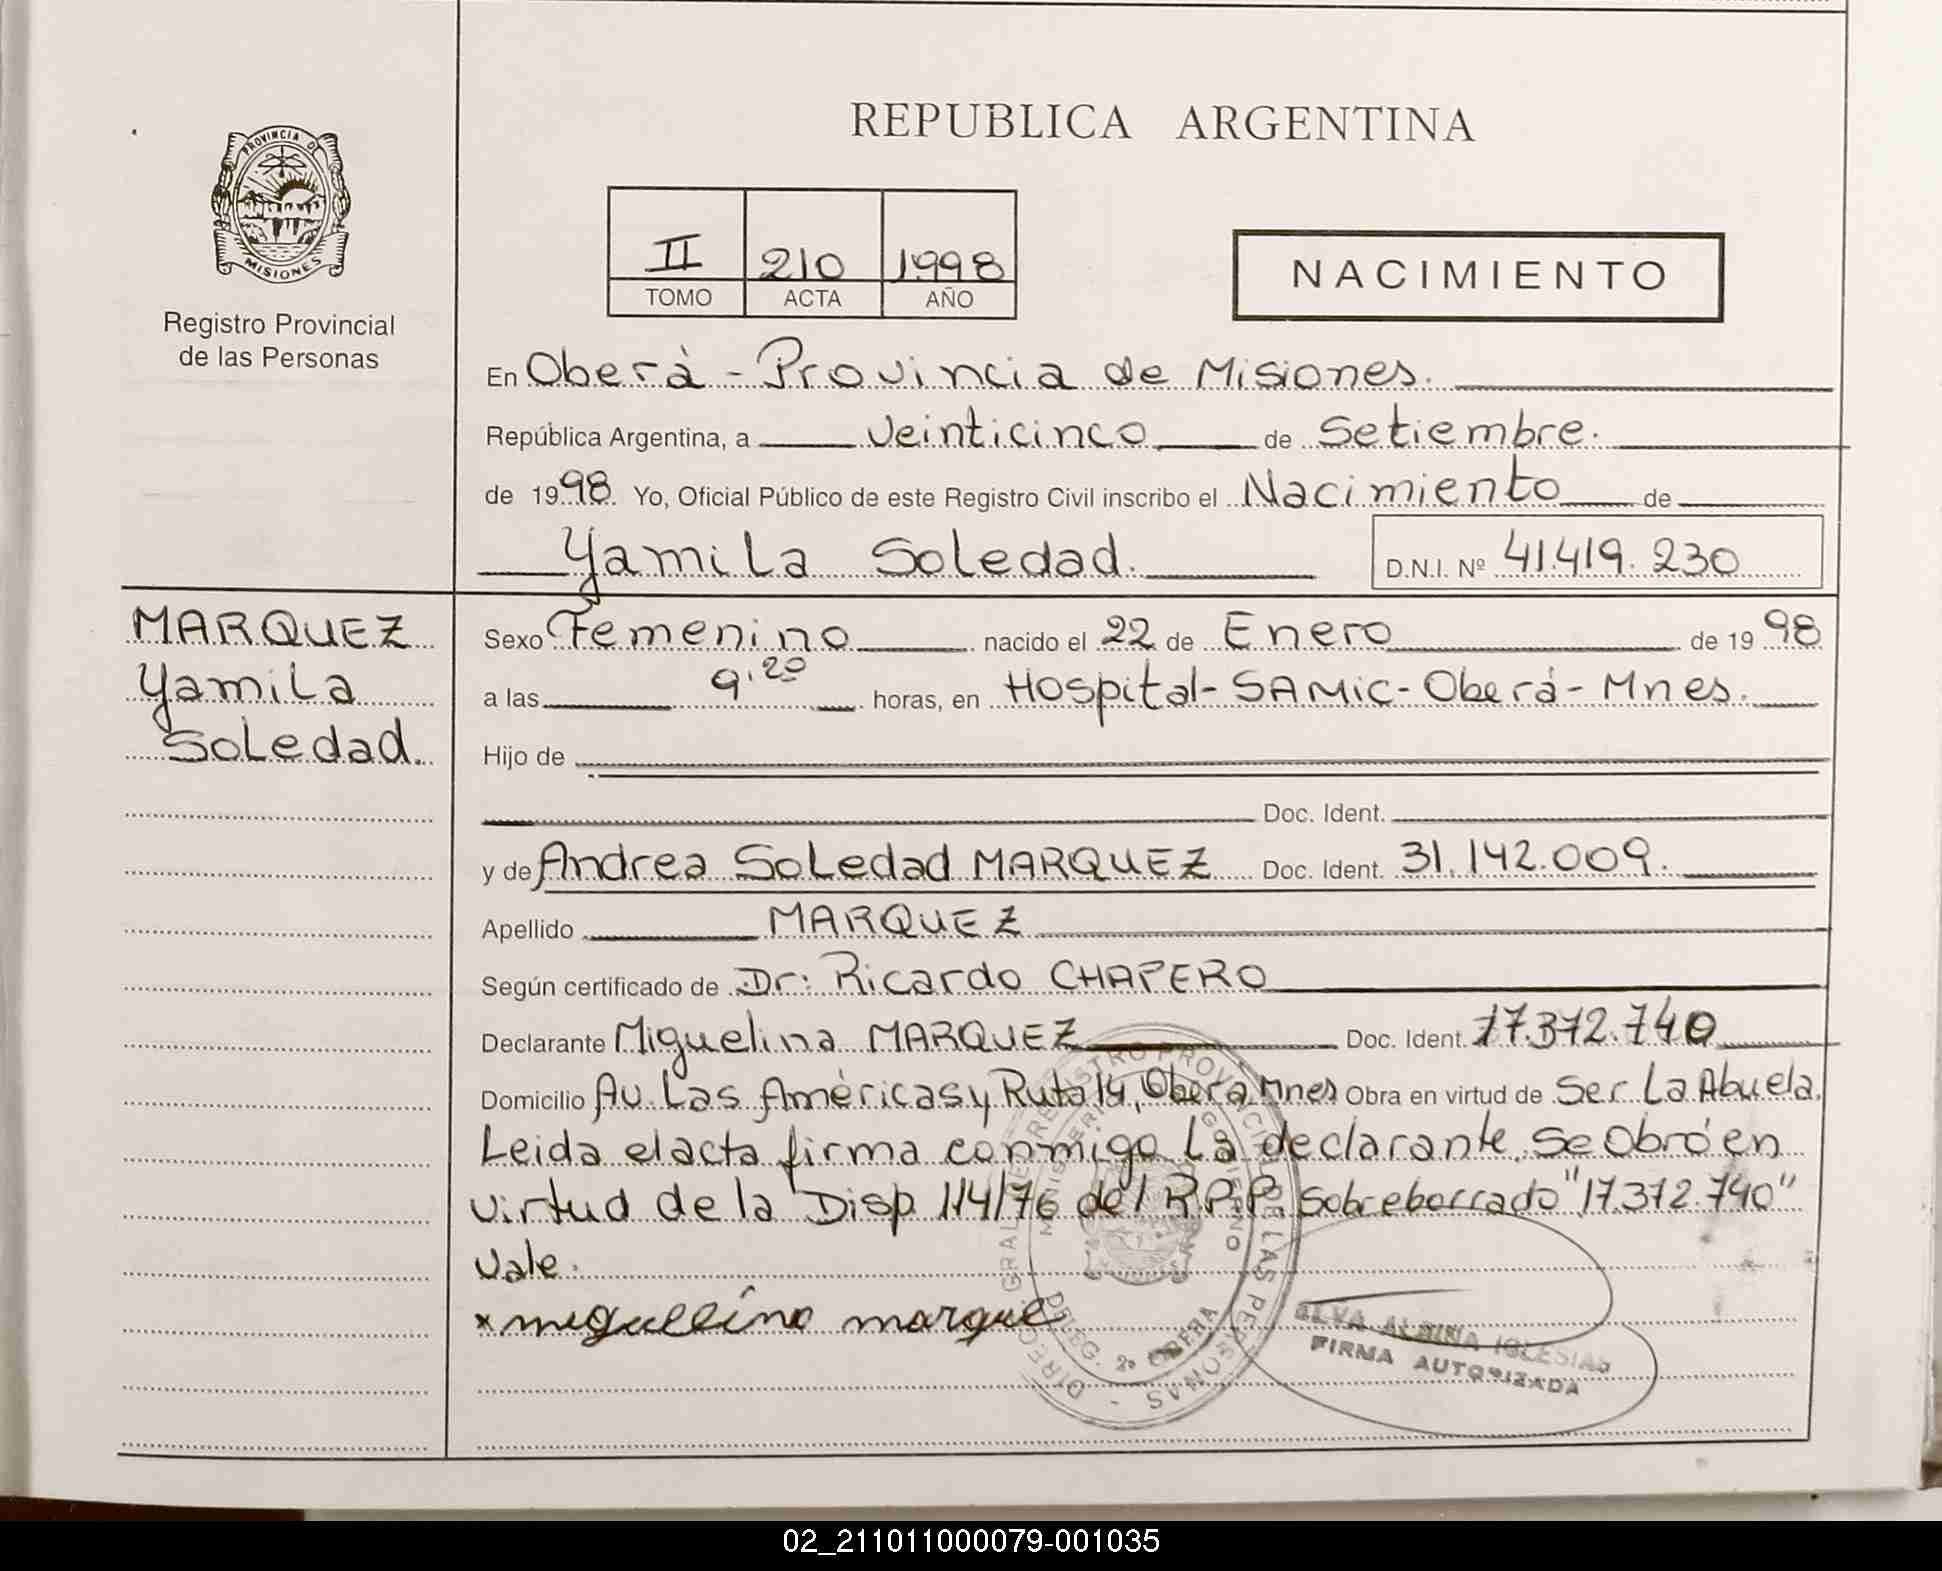 REPUBLICA ARGENTINA
PROVINCIA DE
MISIONES
Registro Provincial
de las Personas
II 210 1998
TOMO ACTA AÑO
NACIMIENTO
En Oberà - Provincia de Misiones.
República Argentina, a veinticinco de Setiembre.
de 1998. Yo, Oficial Público de este Registro Civil inscribo el Nacimiento de
Yamila Soledad. D.N.I. Nº 41.419.230
MARQUEZ
Yamila
Soledad.
Sexo Femenino nacido el 22 de Enero de 1998
a las 9.20 horas, en Hospital - SAMIC - Oberá - Mnes.
Hijo de
Doc. Ident.
y de Andrea Soledad MARQUEZ Doc. Ident. 31.142.009.
Apellido MARQUEZ
Según certificado de Dr: Ricardo CHAPERO
Declarante Miguelina MARQUEZ Doc. Ident. 17.372.740
Domicilio Av. Las Américas y Ruta 14, Oberá Mnes Obra en virtud de Ser La Abuela.
Leida el acta firma conmigo La declarante. Se Obró en
virtud de la Disp. 114/76 del R.P.P. Sobreborrado "17.372.740"
Vale.
x miguelina marque
DIREC. GRAL. DE REGISTRO PROVINCIAL DE LAS PERSONAS
MINISTERIO GOBIERNO
DELEG. 2º OBERA
ELVA ALBINA IGLESIAS
FIRMA AUTORIZADA
02_211011000079-001035